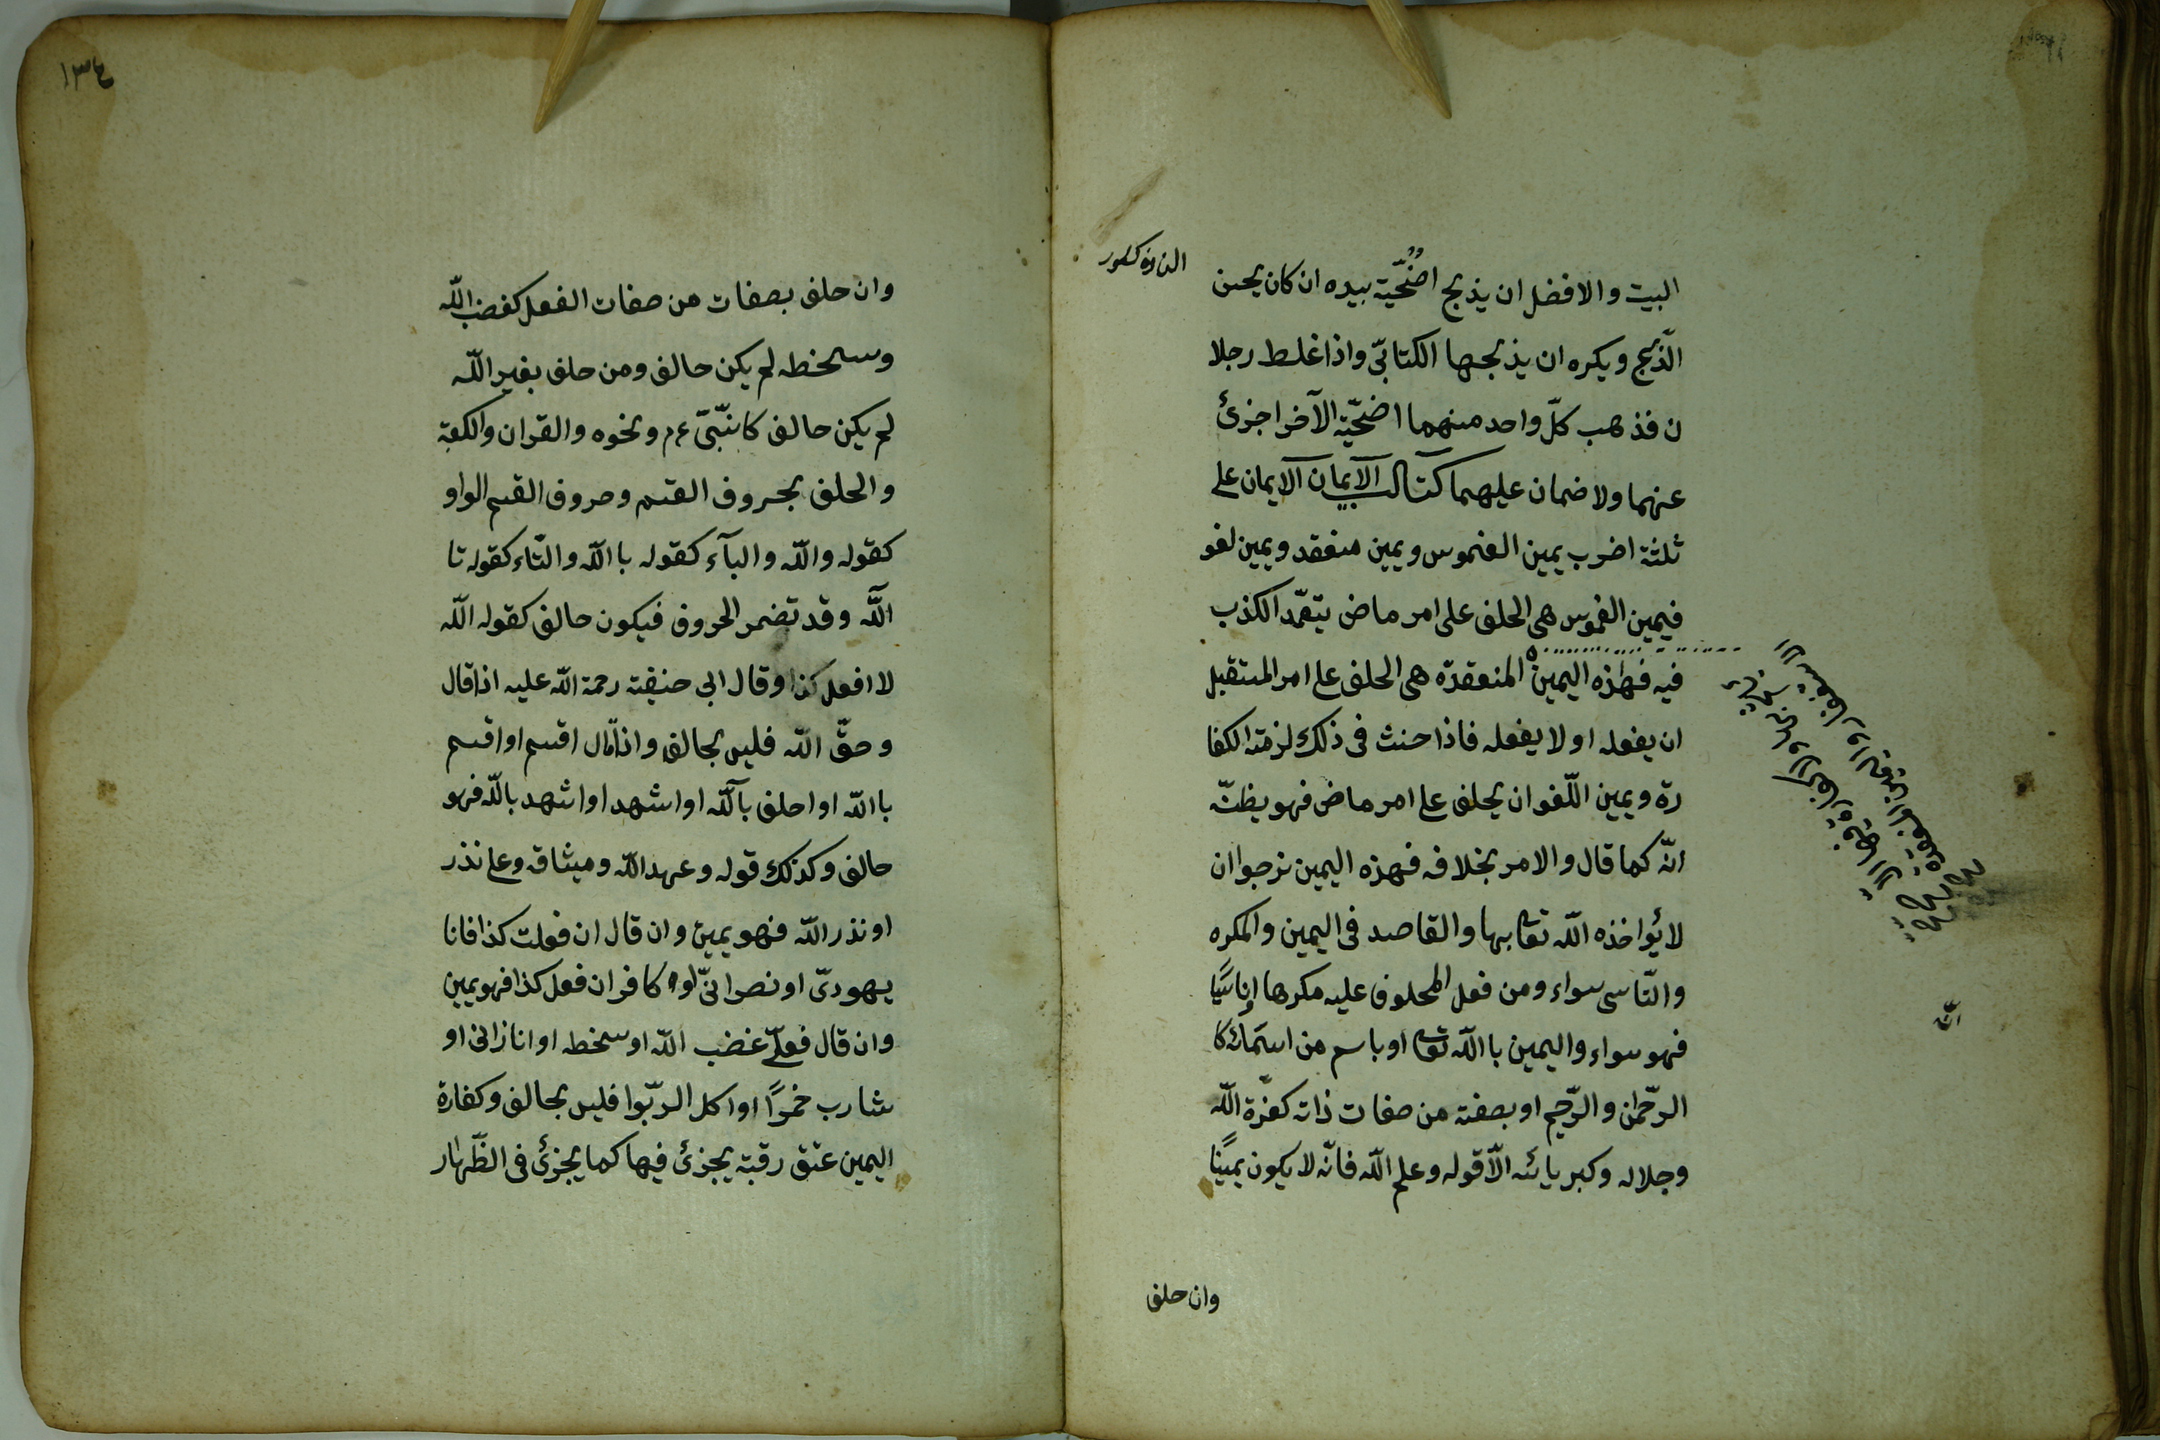 البيت والافضل ان يذبح اضحيّة بيده ان كان يحسن
الذّبح ويكره ان يذبحها الكتابىّ واذا غلط رجلا
ن فذهب كلّ واحد منهما اضحيّة الآخر اجزئ
عنهما ولا ضمان عليهما كتاب الآيمان الآيمان على
ثلثة اضرب يمين الغموس ويمين منعقد ويمين لغو
فيمين الغموس هى الحلف على امر ماض يتعمّد الكذب
فيه فهٰذه اليمين المنعقدة هى الحلف على امر المستقبل
ان يفعله او لا يفعله فاذا حنث فى ذلك لزمته الكفا
رة ويمين اللّغو ان يحلف على امر ماض فهو يظنّ
انّه كما قال والامر بخلافه فهذه اليمين نرجوا ان
لا يؤاخذه اللّه تعا بها والقاصد فى اليمين والمكره
والنّاسى سواء ومن فعل المحلوف عليه مكرها اوناسيًا
فهو سواء واليمين با اللّه تعا او باسم من اسمائه كا
الرحّمٰن والرّحيم او بصفته من صفات ذاته كعزّة اللّه
وجلاله وكبريائه الاّ قوله وعلم اللّه فانّه لا يكون يمينًا
وان حلف
١٣٤
وان حلف بصفات من صفات الفعل كغضب اللّه
وسخطه لم يكن حالف ومن حلف بغير اللّه
لم يكن حالف كا نبّىّ عم ونحوه والقران والكعبة
والحلف بحروف القسم وحروف القسم الواو
كقوله واللّه والبآء كقوله با اللّه والتّاء كقوله تا
اللّٰه وقد تضمر الحروف فيكون حالف كقوله اللّه
لا افعل كذا وقال ابى حنيفة رحمة اللّه عليه اذا قال
وحقّ اللّه فليس بحالف واذا قال اقسم او اقسم
با اللّه او احلف باللّه او اشهد او اشهد باللّه فهو
حالف وكذلك قوله وعهد اللّه وميثاقه وعلى نذر
او نذر اللّه فهو يمين وان قال ان فعلت كذا فانا
يهودىّ او نصرانىّ او كافر ان فعل كذا فهو يمين
وان قال فعلىّ غضب اللّه او سخط او انا زانى او
شارب خمرًا او اكل الربّوا فليس بحالف وكفارة
اليمين عتق رقبة يجزئ فيها كما يجزئ فى الظّهار